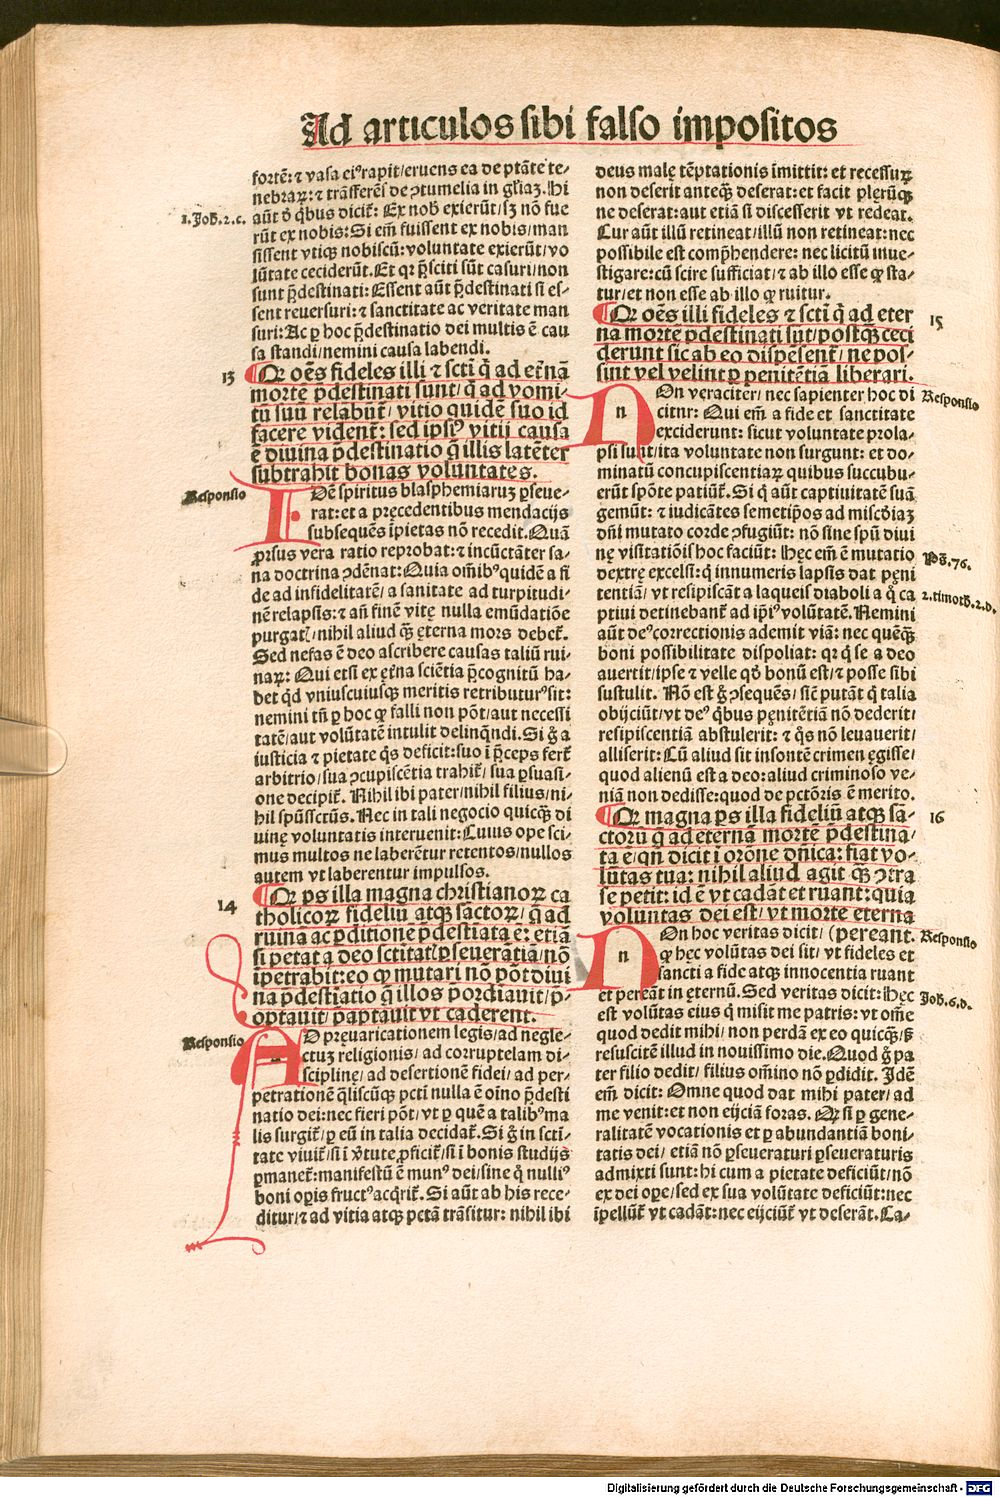 Ad articulos sibi falso impositos
fortē: ⁊ vasa eiꝰ rapit/ eruens ea de ptāte te-
nebraꝝ: ⁊ trāsferēs de ꝯtumelia in gl̄iaꝫ. Hi
1. Joh̄. 2. c.
aūt d̄ q̄bus dicit̄: Ex nob̄ exierūt/ sꝫ nō fue
rūt ex nobis: Si em̄ fuissent ex nobis/ man
sissent vtiqꝫ nobiscū: voluntate exierūt/ vo
lūtate ceciderūt. Et qꝛ p̄sciti sūt casuri/ non
sunt p̄destinati: Essent aūt p̄destinati si es-
sent reuersuri: ⁊ sanctitate ac veritate man
suri: Ac ꝑ hoc p̄destinatio dei multis ē cau
sa standi/ nemini causa labendi.
13
Qꝛ oēs fideles illi ⁊ sctī q̄ ad et̄nā
mortē p̄destinati sunt/ q̄ ad vomi-
tū suū relabūt̄/ vitio quidē suo id
facere vident̄: sed ipsiꝰ vitij causa
ē diuina p̄destinatio q̄ illis latēter
subtrahit bonas voluntates.
Responsio
IDē spiritus blasphemiaruꝫ ꝑseue-
rat: et a pręcedentibus mendacijs
subsequēs īpietas nō recedit. Quā
ꝓrsus vera ratio reprobat: ⁊ incūctāter sa-
na doctrina ꝯdēnat: Quia om̄ibꝰ quidē a fi
de ad infidelitatē/ a sanitate ad turpitudi-
nē relapsis: ⁊ an̄ finē vitę nulla emūdatiōe
purgatꝭ/ nihil aliud qꝫ̄ ęterna mors debet̄.
Sed nefas ē deo ascribere causas taliū rui-
naꝝ: Qui etsi ex ęt̄na sciētia p̄cognitū ha-
bet qd̄ vniuscuiusqꝫ meritis retributurꝰ sit:
nemini tn̄ ꝑ hoc ꝙ falli non pōt/ aut necessi
tatē/ aut volūtatē intulit delinqndi. Si ḡ a
iusticia ⁊ pietate q̄s deficit: suo ī p̄ceps fert̄
arbitrio/ sua ꝯcupiscētia trahit̄/ sua ꝑsuasi-
one decipit̄. Nihil ibi pater/ nihil filius/ ni-
hil sp̄ussctūs. Nec in tali negocio quicqꝫ̄ di
uinę voluntatis interuenit: Cuius ope sci-
mus multos ne laberētur retentos/ nullos
autem vt laberentur impulsos.
14
Qꝛ p̄s illa magna christianoꝝ ca
tholicoꝝ fideliū atqꝫ sāctoꝝ/ q̄ ad
ruinā ac ꝑditione p̄destiata ē: etiā
si petat a deo sctītatꝭ ꝑseuerātiā/ nō
īpetrabit: eo ꝙ mutari nō pōt diui
na p̄destīatio q̄ illos p̄ordīauit/ p̄-
optauit/ p̄aptauit vt caderent.
Responsio
AD pręuaricationem legis/ ad negle-
ctuꝫ religionis/ ad corruptelam di-
sciplinę/ ad desertionē fidei/ ad per-
petrationē q̄liscūqꝫ pctī nulla ē oīno p̄desti
natio dei: nec fieri pōt/ vt ꝑ quē a talibꝰ ma
lis surgit̄/ ꝑ eū in talia decidat̄. Si ḡ in sctī-
tate viuit̄/ si ī v̄tute ꝓficit̄/ si ī bonis studijs
ꝑmanet̄: manifestū ē munꝰ dei/ sine q̄ nulliꝰ
boni opis fructꝰ acq̄rit̄. Si aūt ab his rece-
ditur/ ⁊ ad vitia atqꝫ pctā trāsitur: nihil ibi
deus malę tēptationis īmittit: et recessuꝝ
non deserit anteqꝫ̄ deserat: et facit plerūqꝫ
ne deserat: aut etiā si discesserit vt redeat.
Cur aūt illū retineat/ illū non retineat: nec
possibile est comp̄hendere: nec licitū inue-
stigare: cū scire sufficiat/ ⁊ ab illo esse ꝙ sta-
tur/ et non esse ab illo ꝙ ruitur.
15
Qꝛ oēs illi fideles ⁊ sctī q̄ ad eter
na mortē p̄destinati sūt/ postqꝫ̄ ceci
derunt sic ab eo dispēsent̄/ ne pos-
sint vel velint ꝑ penitētiā liberari.
Responsio
NOn veraciter/ nec sapienter hoc di
citur: Qui em̄ a fide et sanctitate
exciderunt: sicut voluntate prola-
psi sunt/ ita voluntate non surgunt: et do-
minatū concupiscentiaꝝ quibus succubu-
erūt spōte patiūt̄. Si q̄ aūt captiuitatē suā
gemūt: ⁊ iudicātes semetip̄os ad misc̄diaꝫ
dn̄i mutato corde ꝯfugiūt: nō sine spū diui
nę visitatiōis hoc faciūt: Hęc em̄ ē mutatio
Ps̄. 76.
dextrę excelsi: q̄ innumeris lapsis dat pęni
tentiā/ vt resipiscāt a laqueis diaboli a q̊ ca
2. timoth̄. 2. d.
ptiui detinebant̄ ad ip̄iꝰ volūtatē. Nemini
aūt deꝰ correctionis ademit viā: nec quēqꝫ̄
boni possibilitate dispoliat: qꝛ q̄ se a deo
auertit/ ipse ⁊ velle qd̄ bonū est/ ⁊ posse sibi
sustulit. Nō est ḡ ꝯsequēs/ sic̄ putāt q̄ talia
obijciūt/ vt deꝰ q̄bus pęnitētiā nō dederit/
resipiscentiā abstulerit: ⁊ q̄s nō leuauerit/
alliserit: Cū aliud sit insontē crimen ęgisse/
quod alienū est a deo: aliud criminoso ve-
niā non dedisse: quod de pctōris ē merito.
16
Qꝛ magna p̄s illa fideliū atqꝫ sā-
ctorū q̄ ad eternā mortē p̄destina-
ta ē/ qn̄ dicit ī orōne dn̄ica: fiat vo-
lūtas tua: nihil aliud agit qꝫ̄ ꝯtra
se petit: id ē vt cadāt et ruant: quia
voluntas dei est/ vt morte eterna
(pereant.
Responsio
NOn hoc veritas dicit/
ꝙ hęc volūtas dei sit/ vt fideles et
sancti a fide atqꝫ innocentia ruant
et pereāt in ęternū. Sed veritas dicit: Hęc
Joh̄. 6. d.
est volūtas eius q̄ misit me patris: vt om̄e
quod dedit mihi/ non perdā ex eo quicqꝫ/ sꝫ
resuscitē illud in nouissimo die. Quod ḡ pa
ter filio dedit/ filius om̄ino nō ꝑdidit. Idē
em̄ dicit: Omne quod dat mihi pater/ ad
me venit: et non eijciā foras. Qꝛ si ꝑ gene-
ralitatē vocationis et ꝑ abundantiā boni-
tatis dei/ etiā nō ꝑseueraturi ꝑseueraturis
admixti sunt: hi cum a pietate deficiūt/ nō
ex dei ope/ sed ex sua volūtate deficiūt: nec
īpellūt̄ vt cadāt: nec eijciūt̄ vt deserāt. Ca-
Digitalisierung gefördert durch die Deutsche Forschungsgemeinschaft - DFG